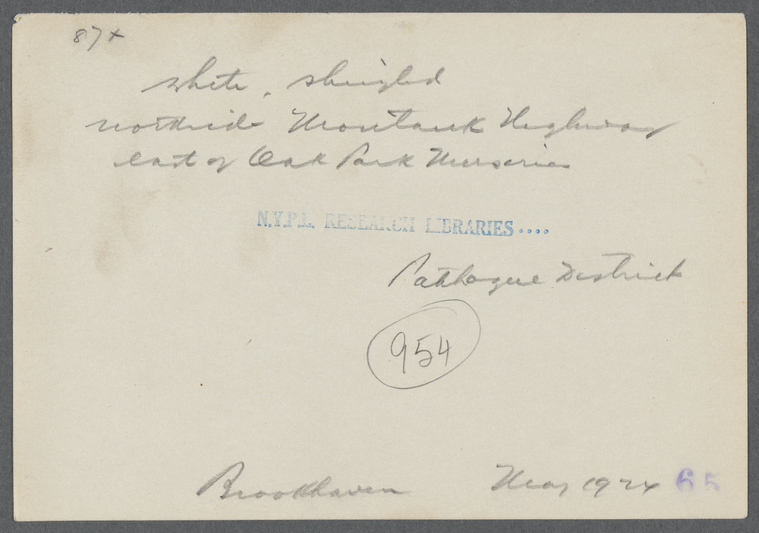 87+
white, shingled
northside Montauk Highway
east of Oak Park Nurseries
N.Y.P.L. RESEARCH LIBRARIES....
Patchogue District
954
Brookhaven May 1924 65